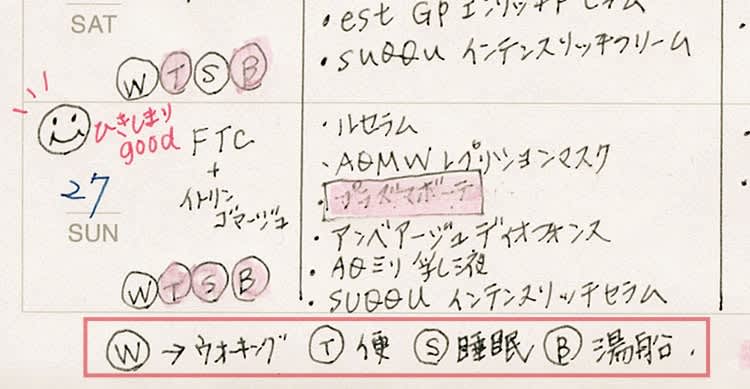 SAT
・est GP エンリッチド セラム
・SUQQU インテンスリッチクリーム
W T S B
ひきしまり
good
27
SUN
FTC
+
イトリン
ゴマージュ
W T S B
・ルセラム
・AQMW レプリションマスク
・プラズマボーテ
・アンベアージュ ディオフォンス
・AQミリ 乳液
・SUQQU インテンスリッチセラム
W→ウオーキング T 便 S 睡眠 B 湯船.